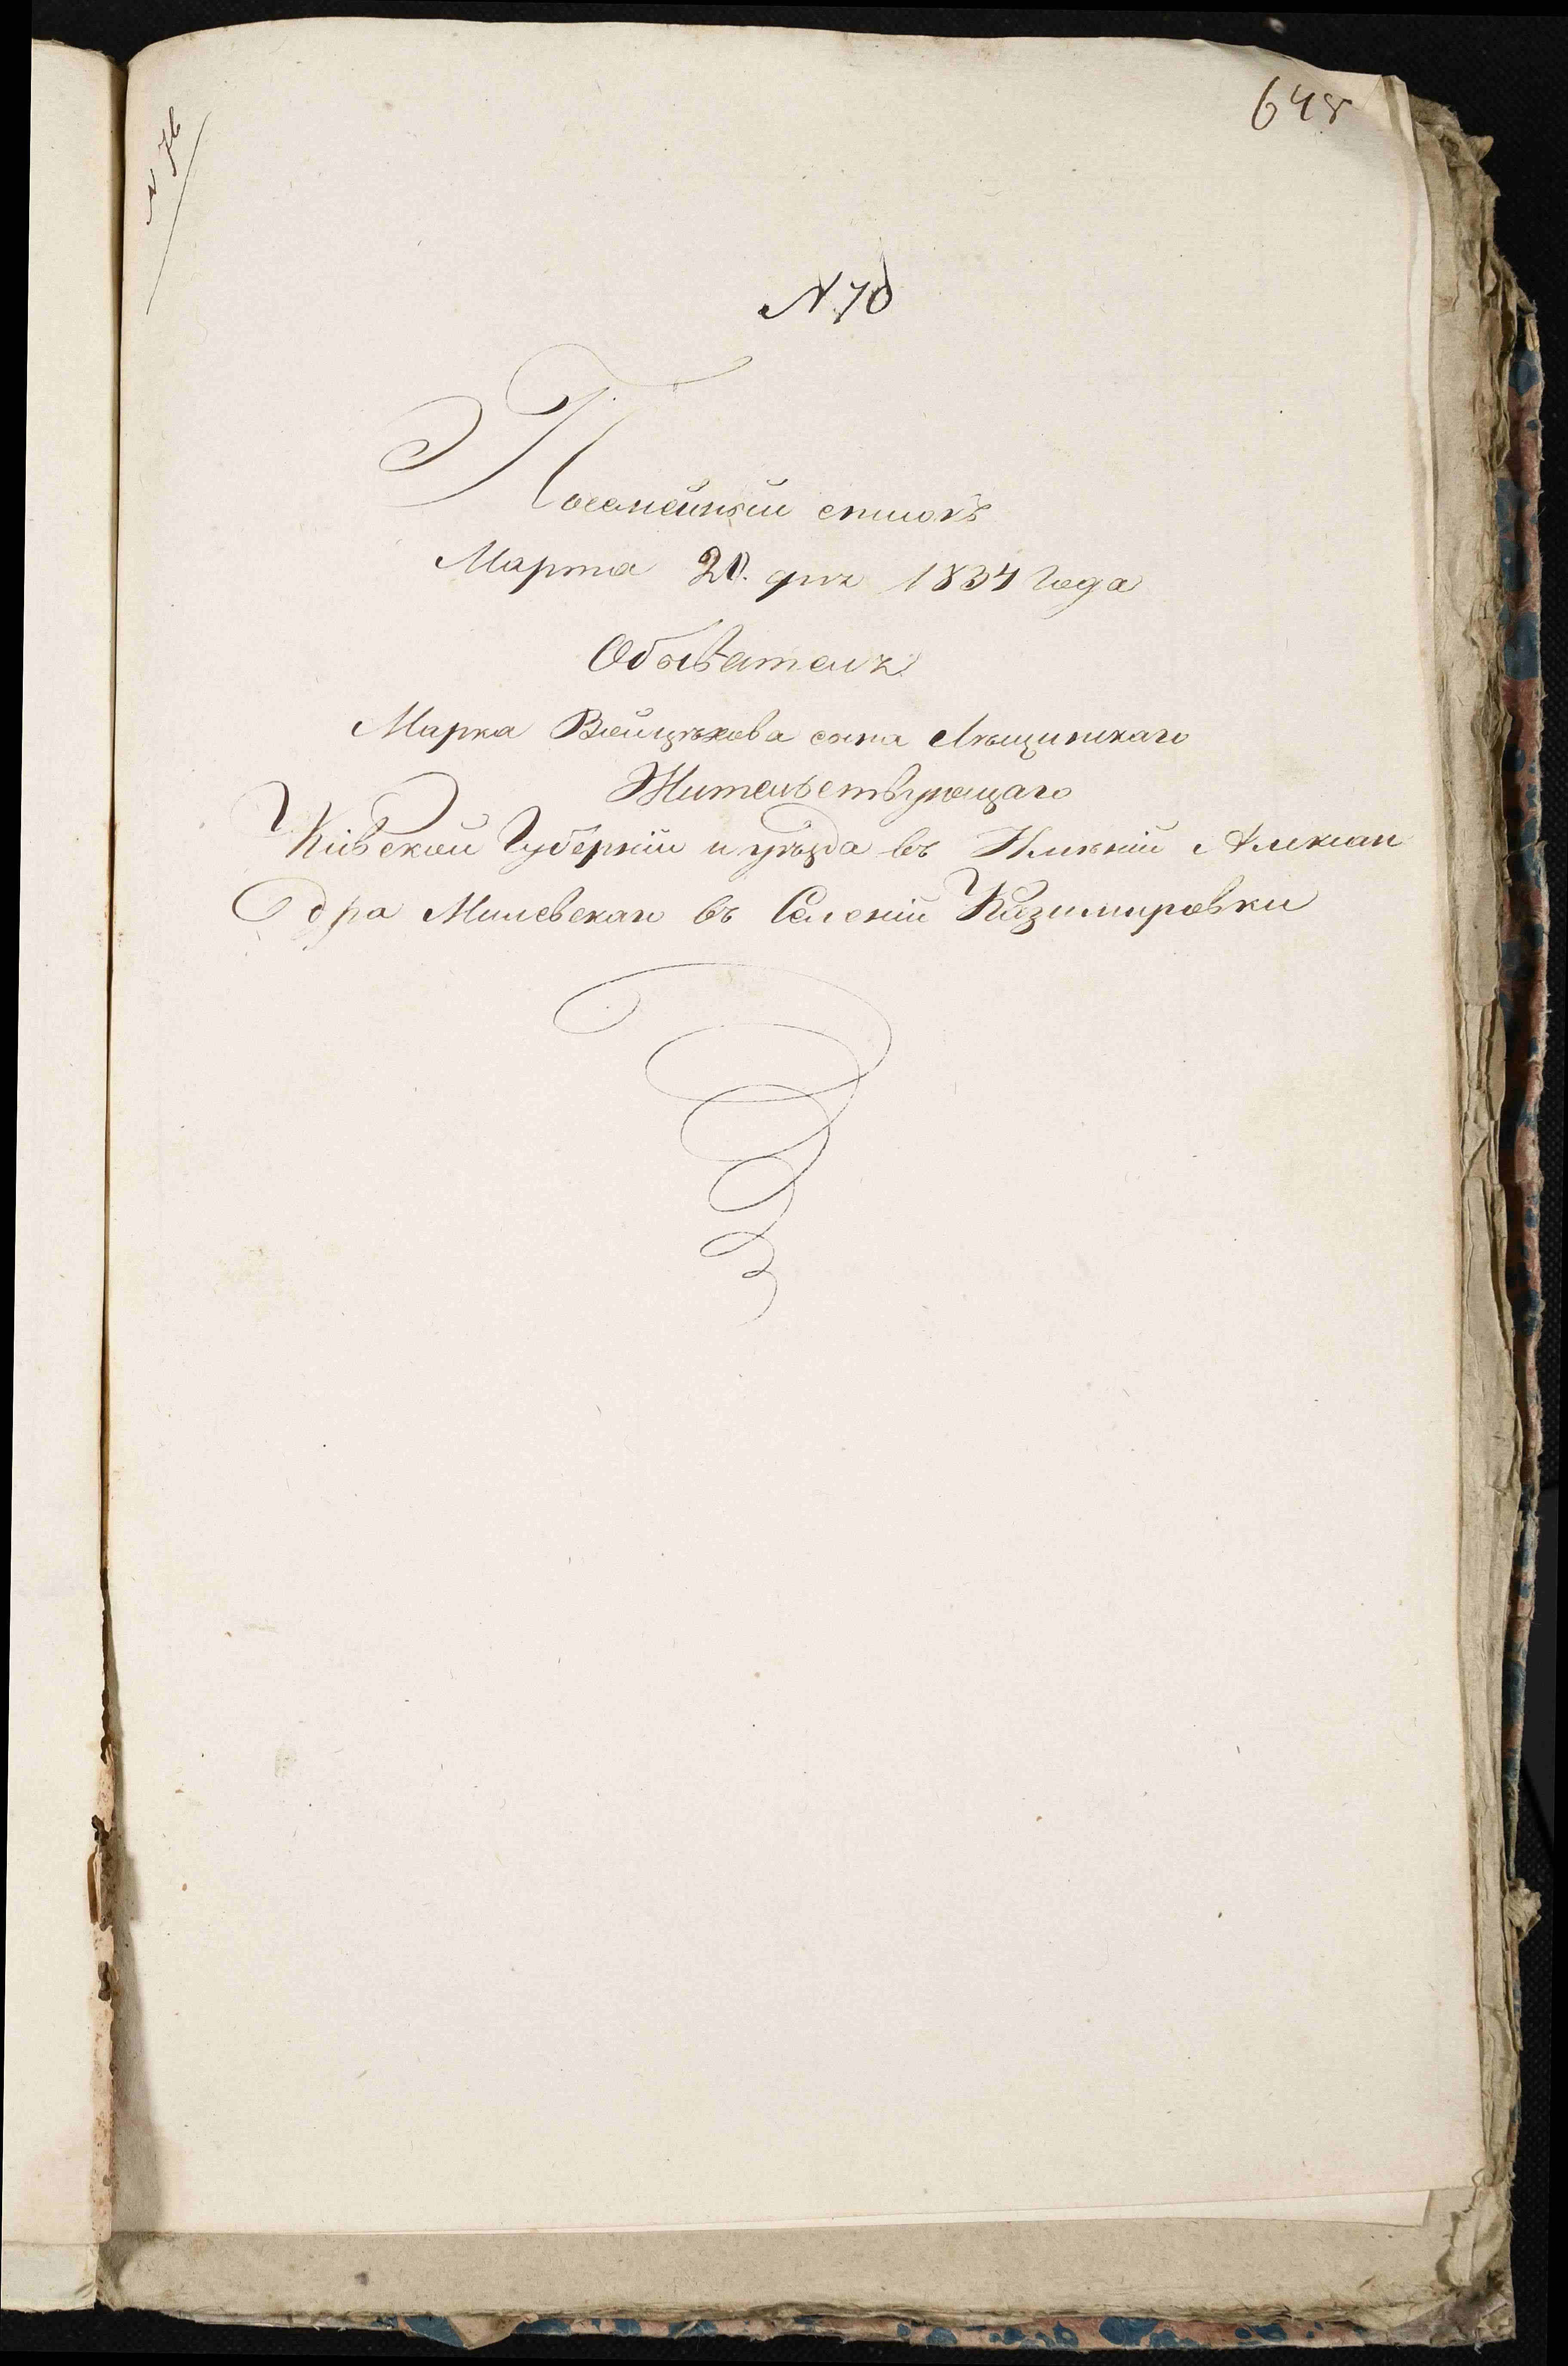 648
N 76
N 70
Посемейный списокъ
Марта 20. дня 1834 Года
Обывателя
Марка Войцѣхова сына Лѣщинскаго
Жительствующаго
Кіевской Губерніи и уѣзда въ Имѣніи Алексан
дра Милевскаго въ Селеніи Казимировки